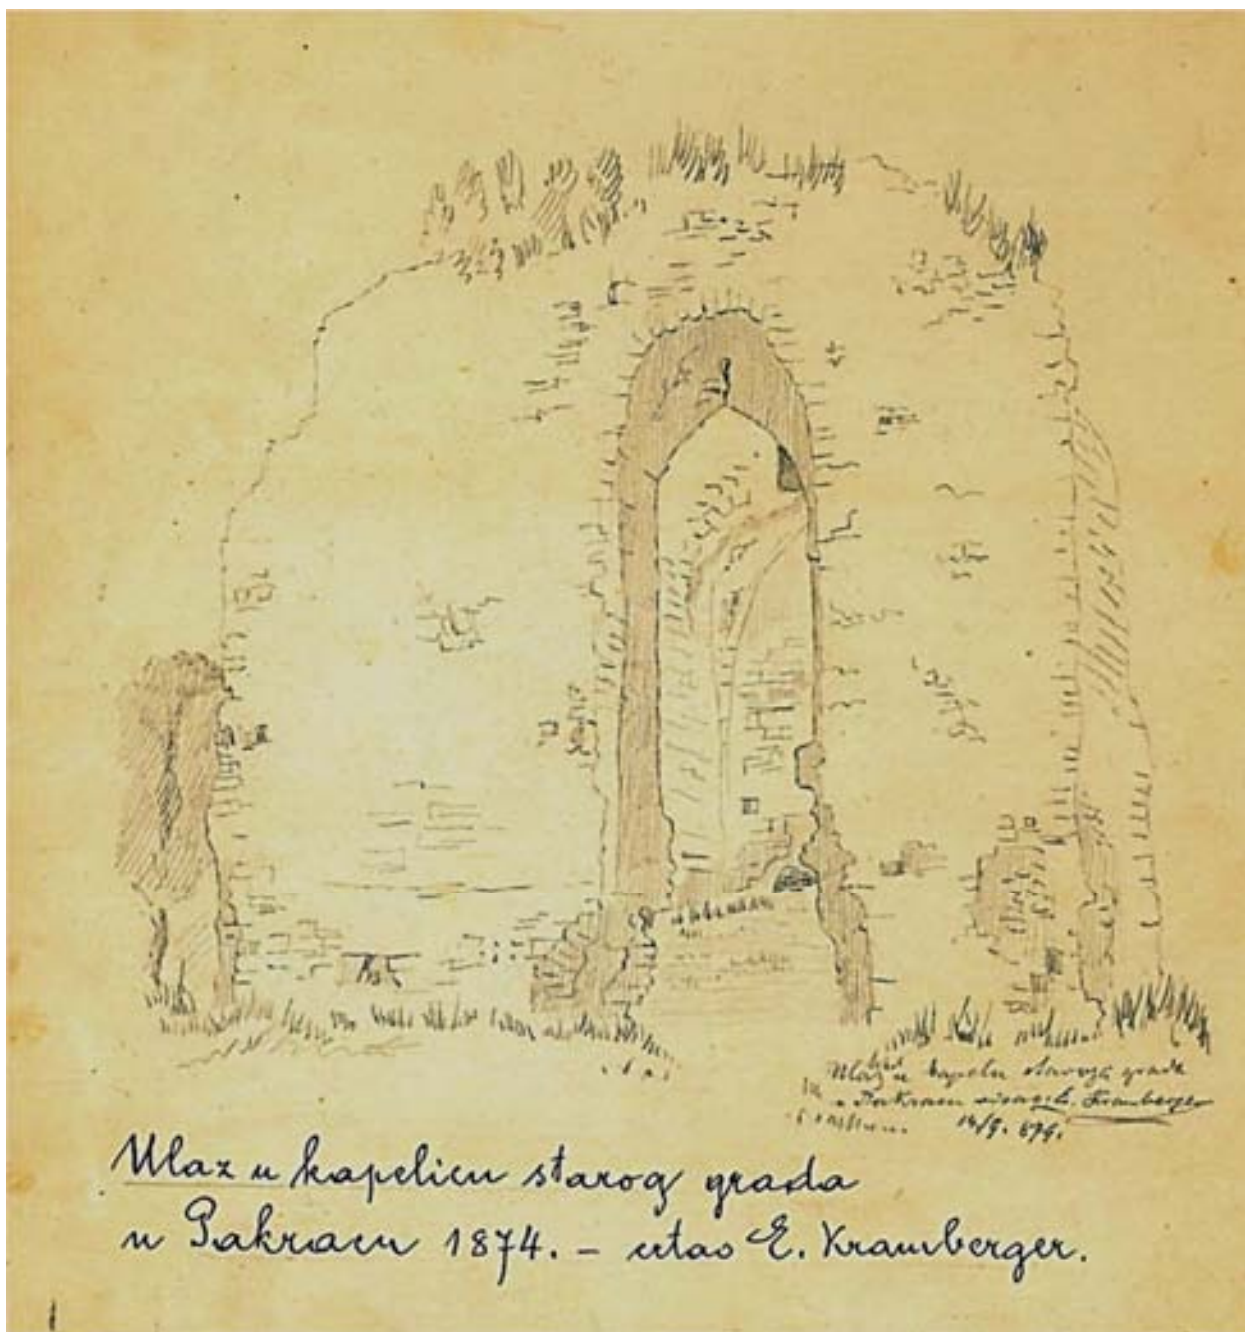 Ulaz u kapelu staroga grada
u Pakracu E. Kramberger
14/9. 874.
Ulaz u kapelicu starog grada
u Pakracu 1874. – crtao E. Kramberger.